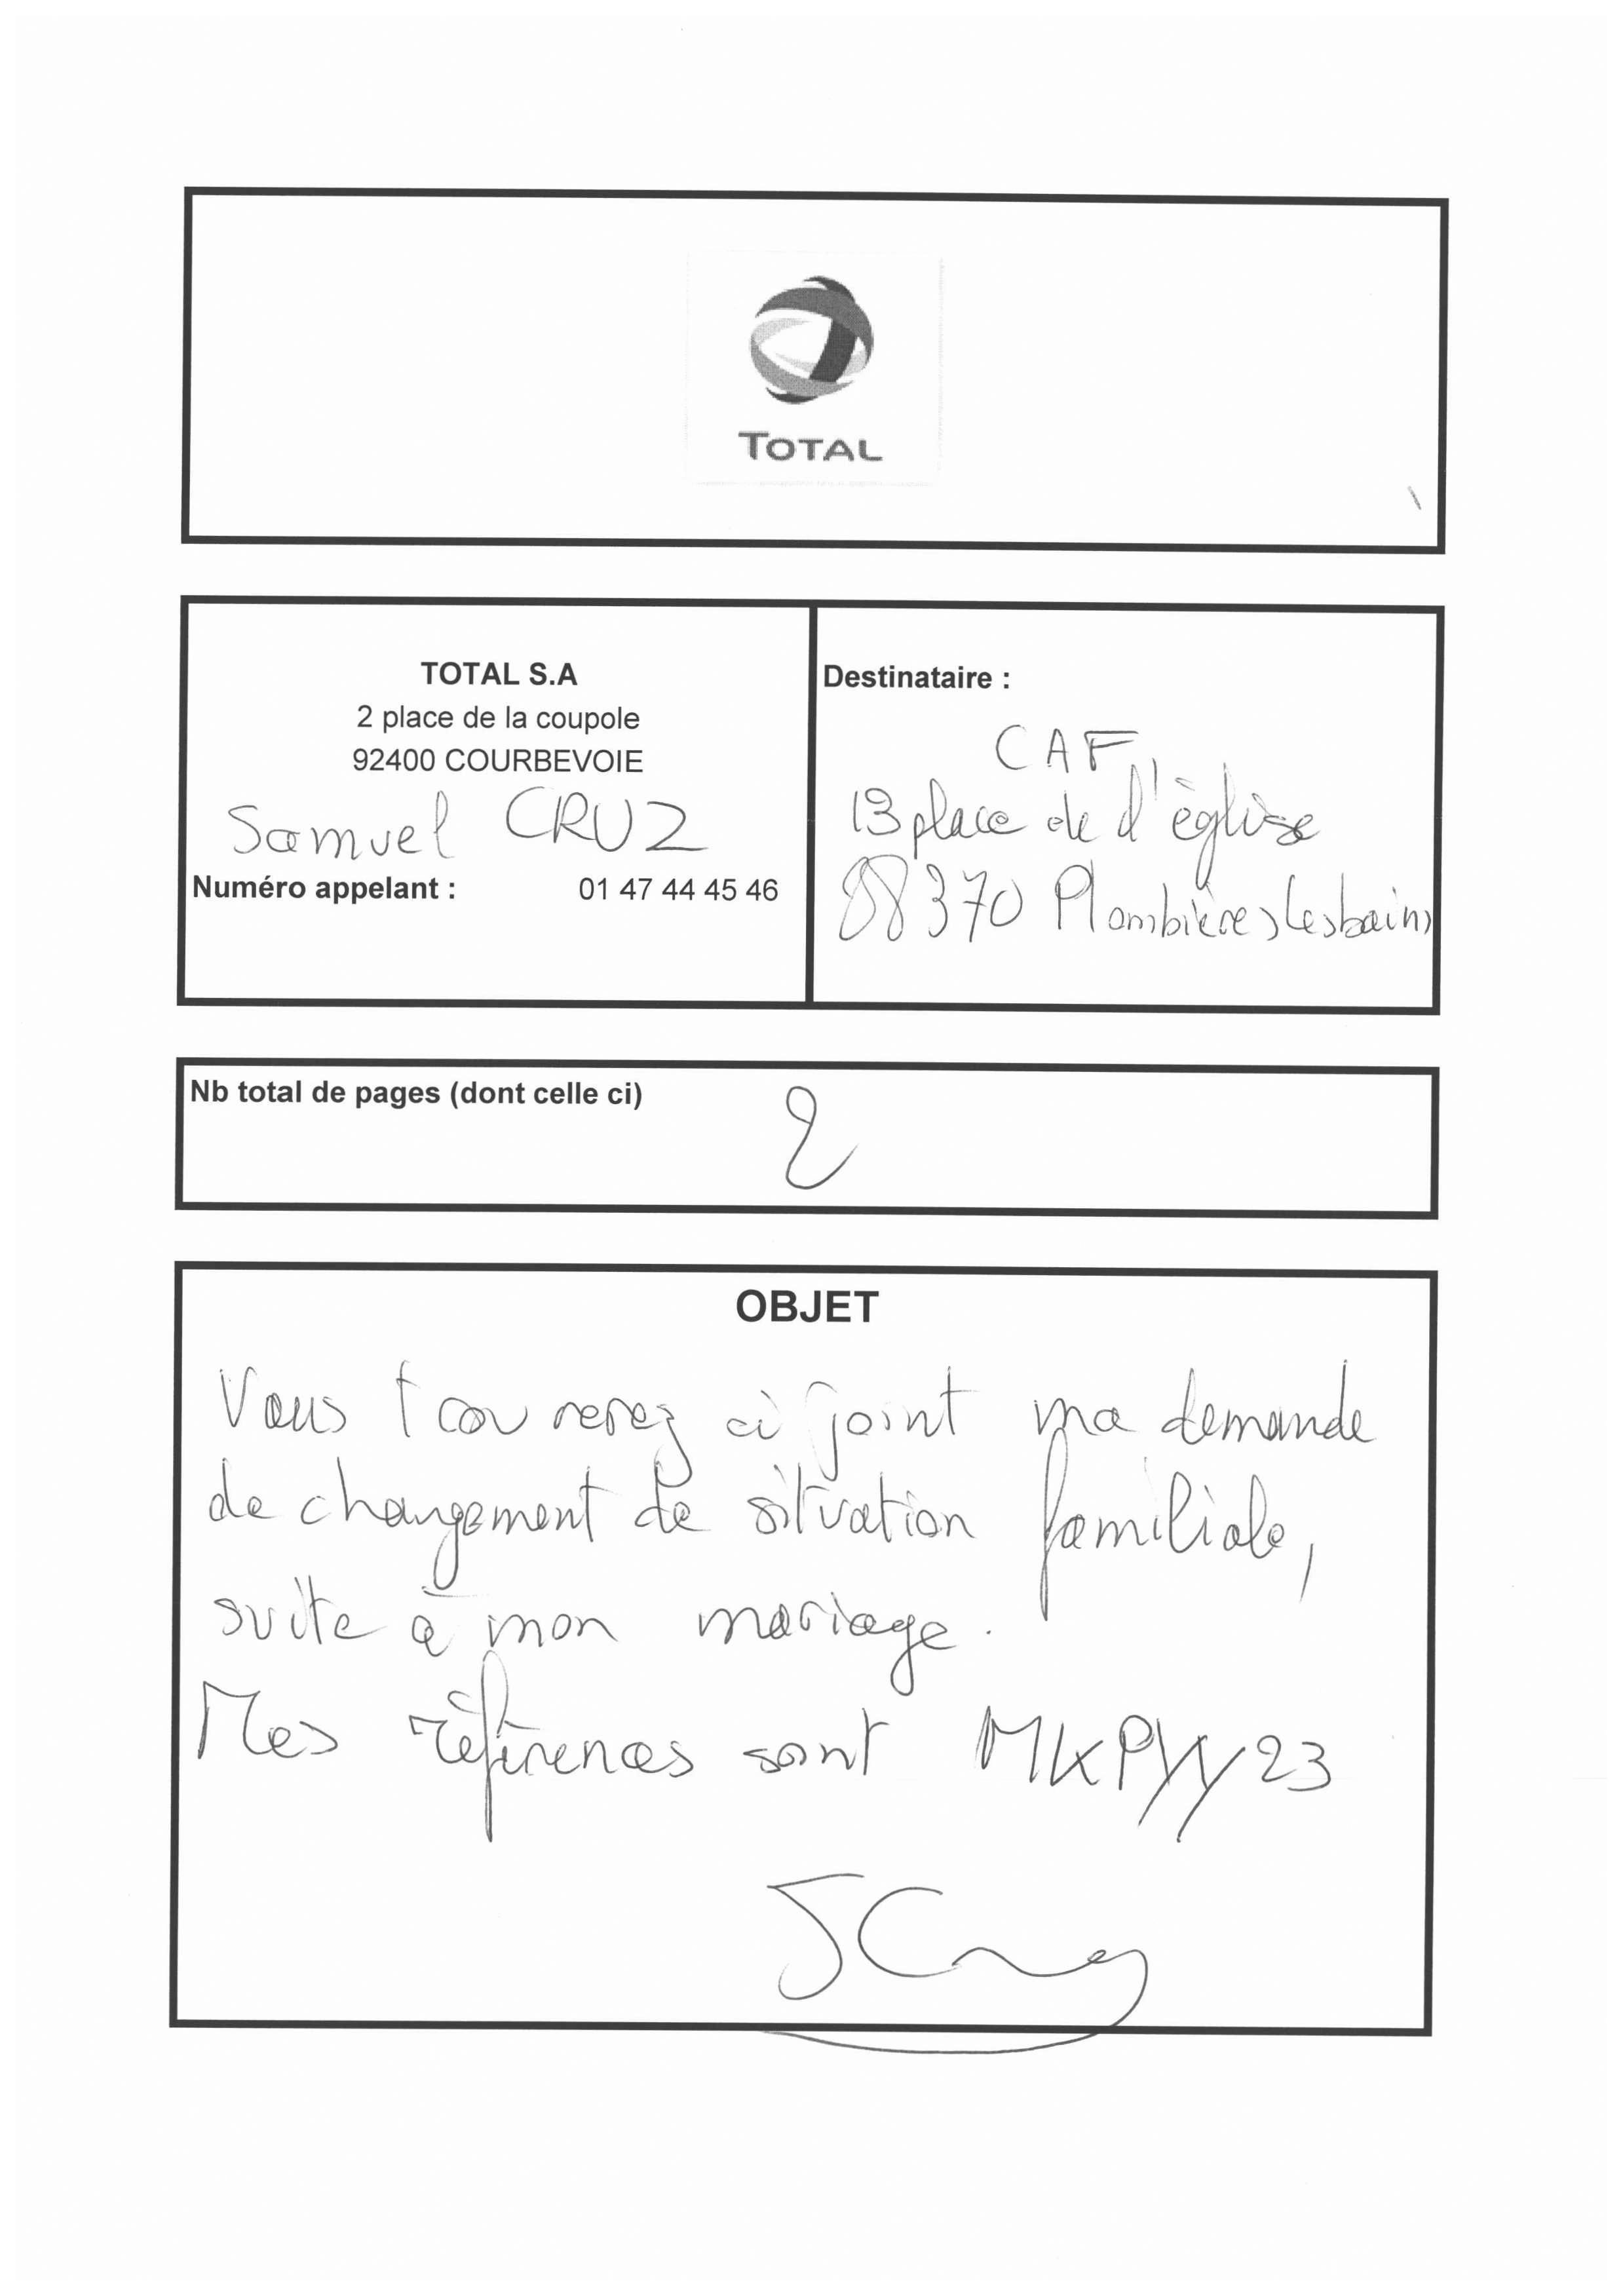 TOTAL
TOTAL S.A
2 place de la coupole
92400 COURBEVOIE
Samuel CRUZ
Numéro appelant : 01 47 44 45 46
Destinataire :
CAF
13 place de l'église
88370 Plombières les bains
Nb total de pages (dont celle ci) 2
OBJET
Vous trouverez ci joint ma demande
de changement de situation familiale,
suite à mon mariage.
Mes références sont MKPYY23
SCruz